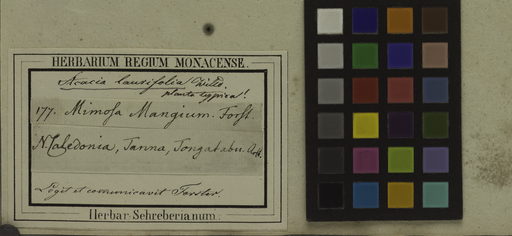 HERBARIUM REGIUM MONACENSE.
Acacia laurifolia Willd.
planta typica!
177. Mimosa Mangium. Forst.
N. Caledonia, Tanna, Tongatabu.
Legit et communicavit Forster.
Herbar. Schreberianum.